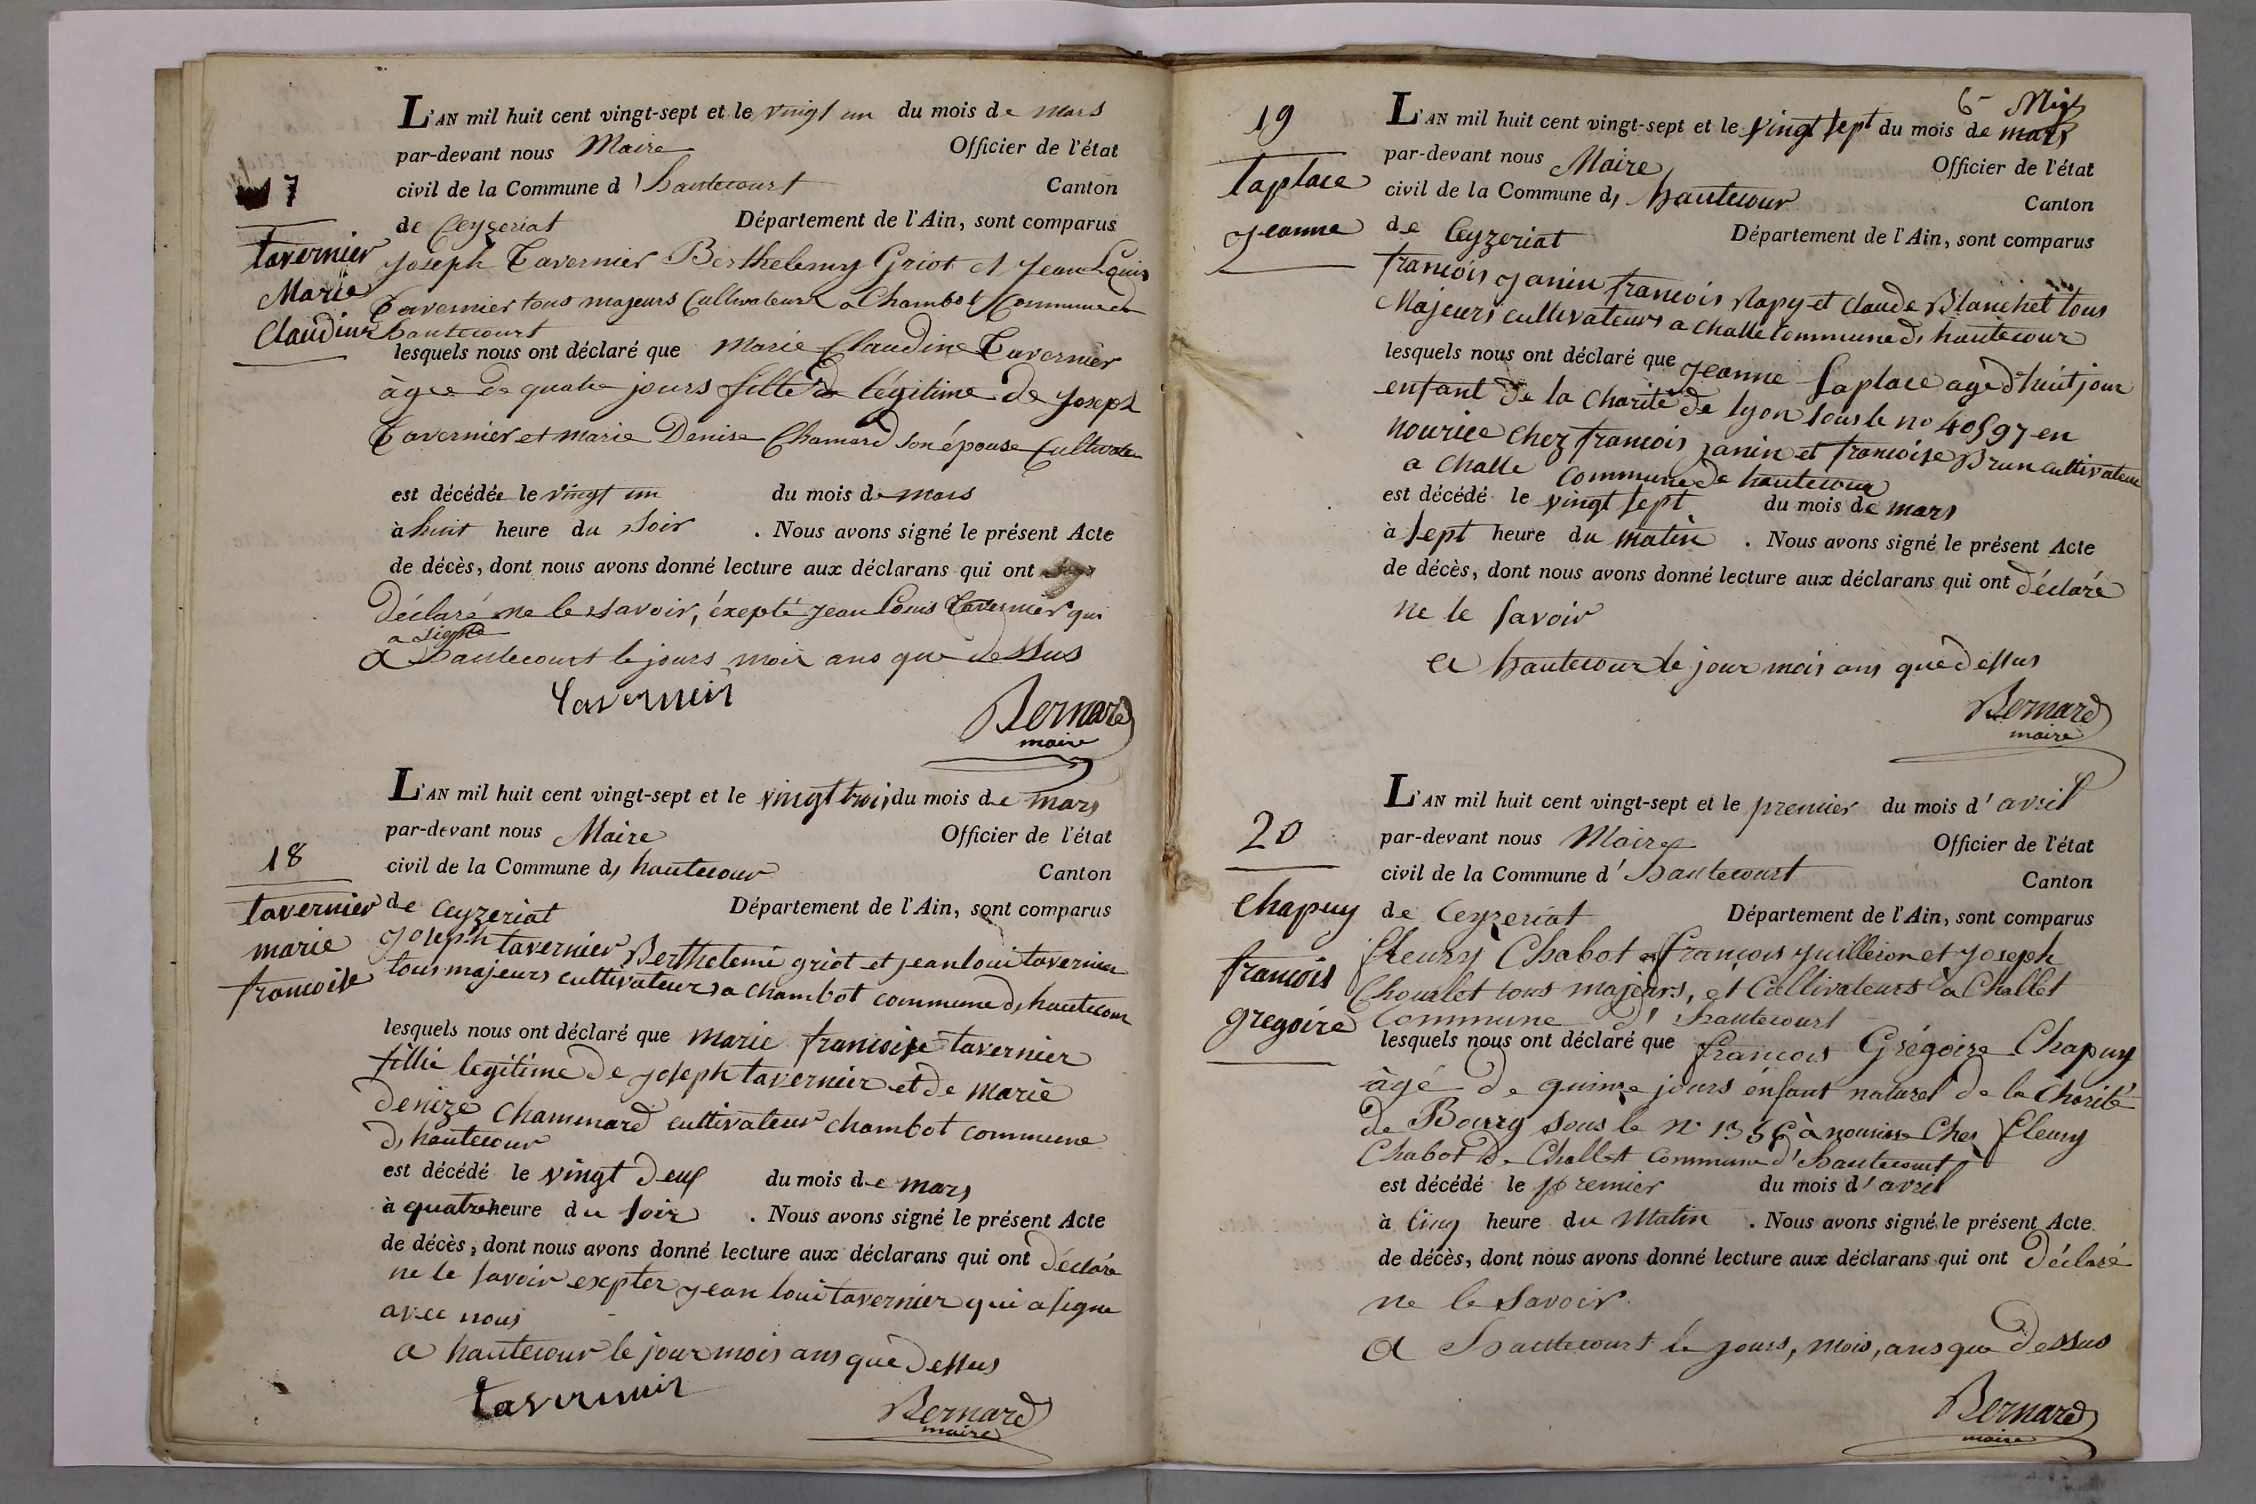 17
Tavernier
Marie
Claudine
L'AN mil huit cent vingt-sept et le vingt un du mois de mars
par-devant nous Maire Officier de l'état
civil de la Commune d'hautecourt Canton
de Ceyzeriat Département de l'Ain, sont comparus
Joseph Tavernier Berthelemy Griot et Jean Louis
Tavernier tous majeurs Cultivateurs a Chambot Commune de
hautecourt
lesquels nous ont déclaré que Marie Claudine Tavernier
àgée de quatre jours fille légitime de Joseph
Tavernier et marie Denise Chamard son épouse Cultivateur
est décédée le vingt un du mois de mars
à huit heure du soir . Nous avons signé le présent Acte
de décès, dont nous avons donné lecture aux déclarans qui ont
Déclaré ne le savoir, éxepté jean Louis Tavernier qui
a signé
A hautecourt le jours mois ans que dessus
Tavernier
Bernard
maire
18
tavernier
marie
francoise
L'AN mil huit cent vingt-sept et le vingt trois du mois de mars
par-devant nous Maire Officier de l'état
civil de la Commune d, hautecour Canton
de Ceyzeriat Département de l'Ain, sont comparus
joseph tavernier Berthelemi griot et jean loui tavernier
tous majeurs cultivateurs a chambot commune d, hautecour
lesquels nous ont déclaré que marie francoise tavernier
fillie legitime de joseph tavernier et de marie
denize chammard cultivateur chambot commune
d, hautecour
est décédé le vingt deux du mois de mars
à quatre heure du soir . Nous avons signé le présent Acte
de décès, dont nous avons donné lecture aux déclarans qui ont déclaré
ne le savoir expter jean loui tavernier qui a signe
avec nous
a hautecour le jour mois ans que dessus
tavernier
Bernard
maire
6
19
Laplace
jeanne
L'AN mil huit cent vingt-sept et le vingt sept du mois de mars
par-devant nous Maire Officier de l'état
civil de la Commune d, hautecour Canton
de Ceyzeriat Département de l'Ain, sont comparus
francois janin francois Rapy et claude Blanchet tous
Majeurs cultivateurs a challe commune d, hautecour
lesquels nous ont déclaré que jeanne Laplace agè d'huit jour
enfant de la charité de lyon sous le no 40597 en
nourice chez francois janin et francoise Brun cultivateur
a challe commune de hautecour
est décédé le vingt sept du mois de mars
à sept heure du matin . Nous avons signé le présent Acte
de décès, dont nous avons donné lecture aux déclarans qui ont déclaré
ne le savoir
a hautecour le jour mois ans que dessus
Bernard
maire
20
Chapuy
francois
gregoire
L'AN mil huit cent vingt-sept et le premier du mois d'avril
par-devant nous Maire Officier de l'état
civil de la Commune d'hautecourt Canton
de Ceyzeriat Département de l'Ain, sont comparus
fleury Chabot francois juilleron et joseph
Chourlet tous majeurs, et Cultivateurs à Challet
Commune d'hautecourt
lesquels nous ont déclaré que francois Grégoire Chapuy
àgé de quinze jours énfant naturel de la Charité
de Bourg sous le n° 1356 à nourisse Ches fleury
Chabot de Challet commune d'hautecourt
est décédé le premier du mois d'avril
à cinq heure du Matin . Nous avons signé le présent Acte
de décès, dont nous avons donné lecture aux déclarans qui ont déclaré
ne le savoir.
A hautecourt le jours, mois, ans que dessus
Bernard
maire